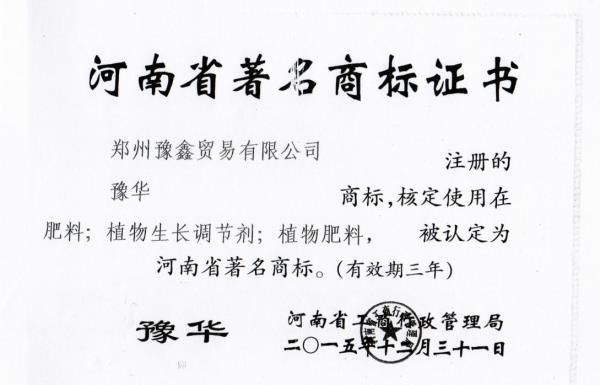 河南省著名商标证书
郑州豫鑫贸易有限公司 注册的
豫华 商标,核定使用在
肥料；植物生长调节剂；植物肥料， 被认定为
河南省著名商标。(有效期三年)
豫华 河南省工商行政管理局
二〇一五年十二月三十一日